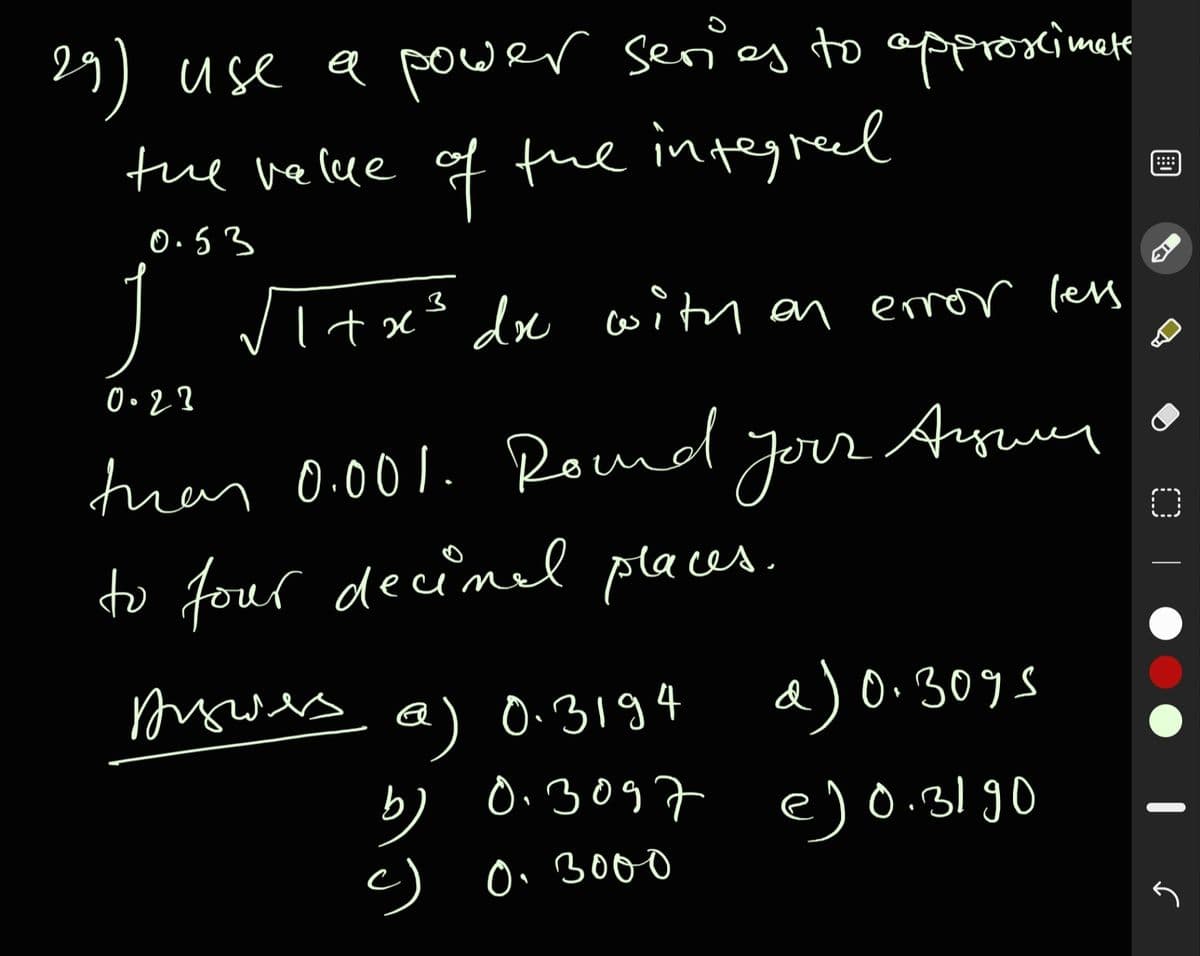 29) use a power series to approximate
the value of the integral
∫ 0.53 0.23 √1+x³ dx with an error less
than 0.001. Round your Answer
to four decimal places.
Answers a) 0.3194 d) 0.3095
b) 0.3097 e) 0.3190
c) 0.3000